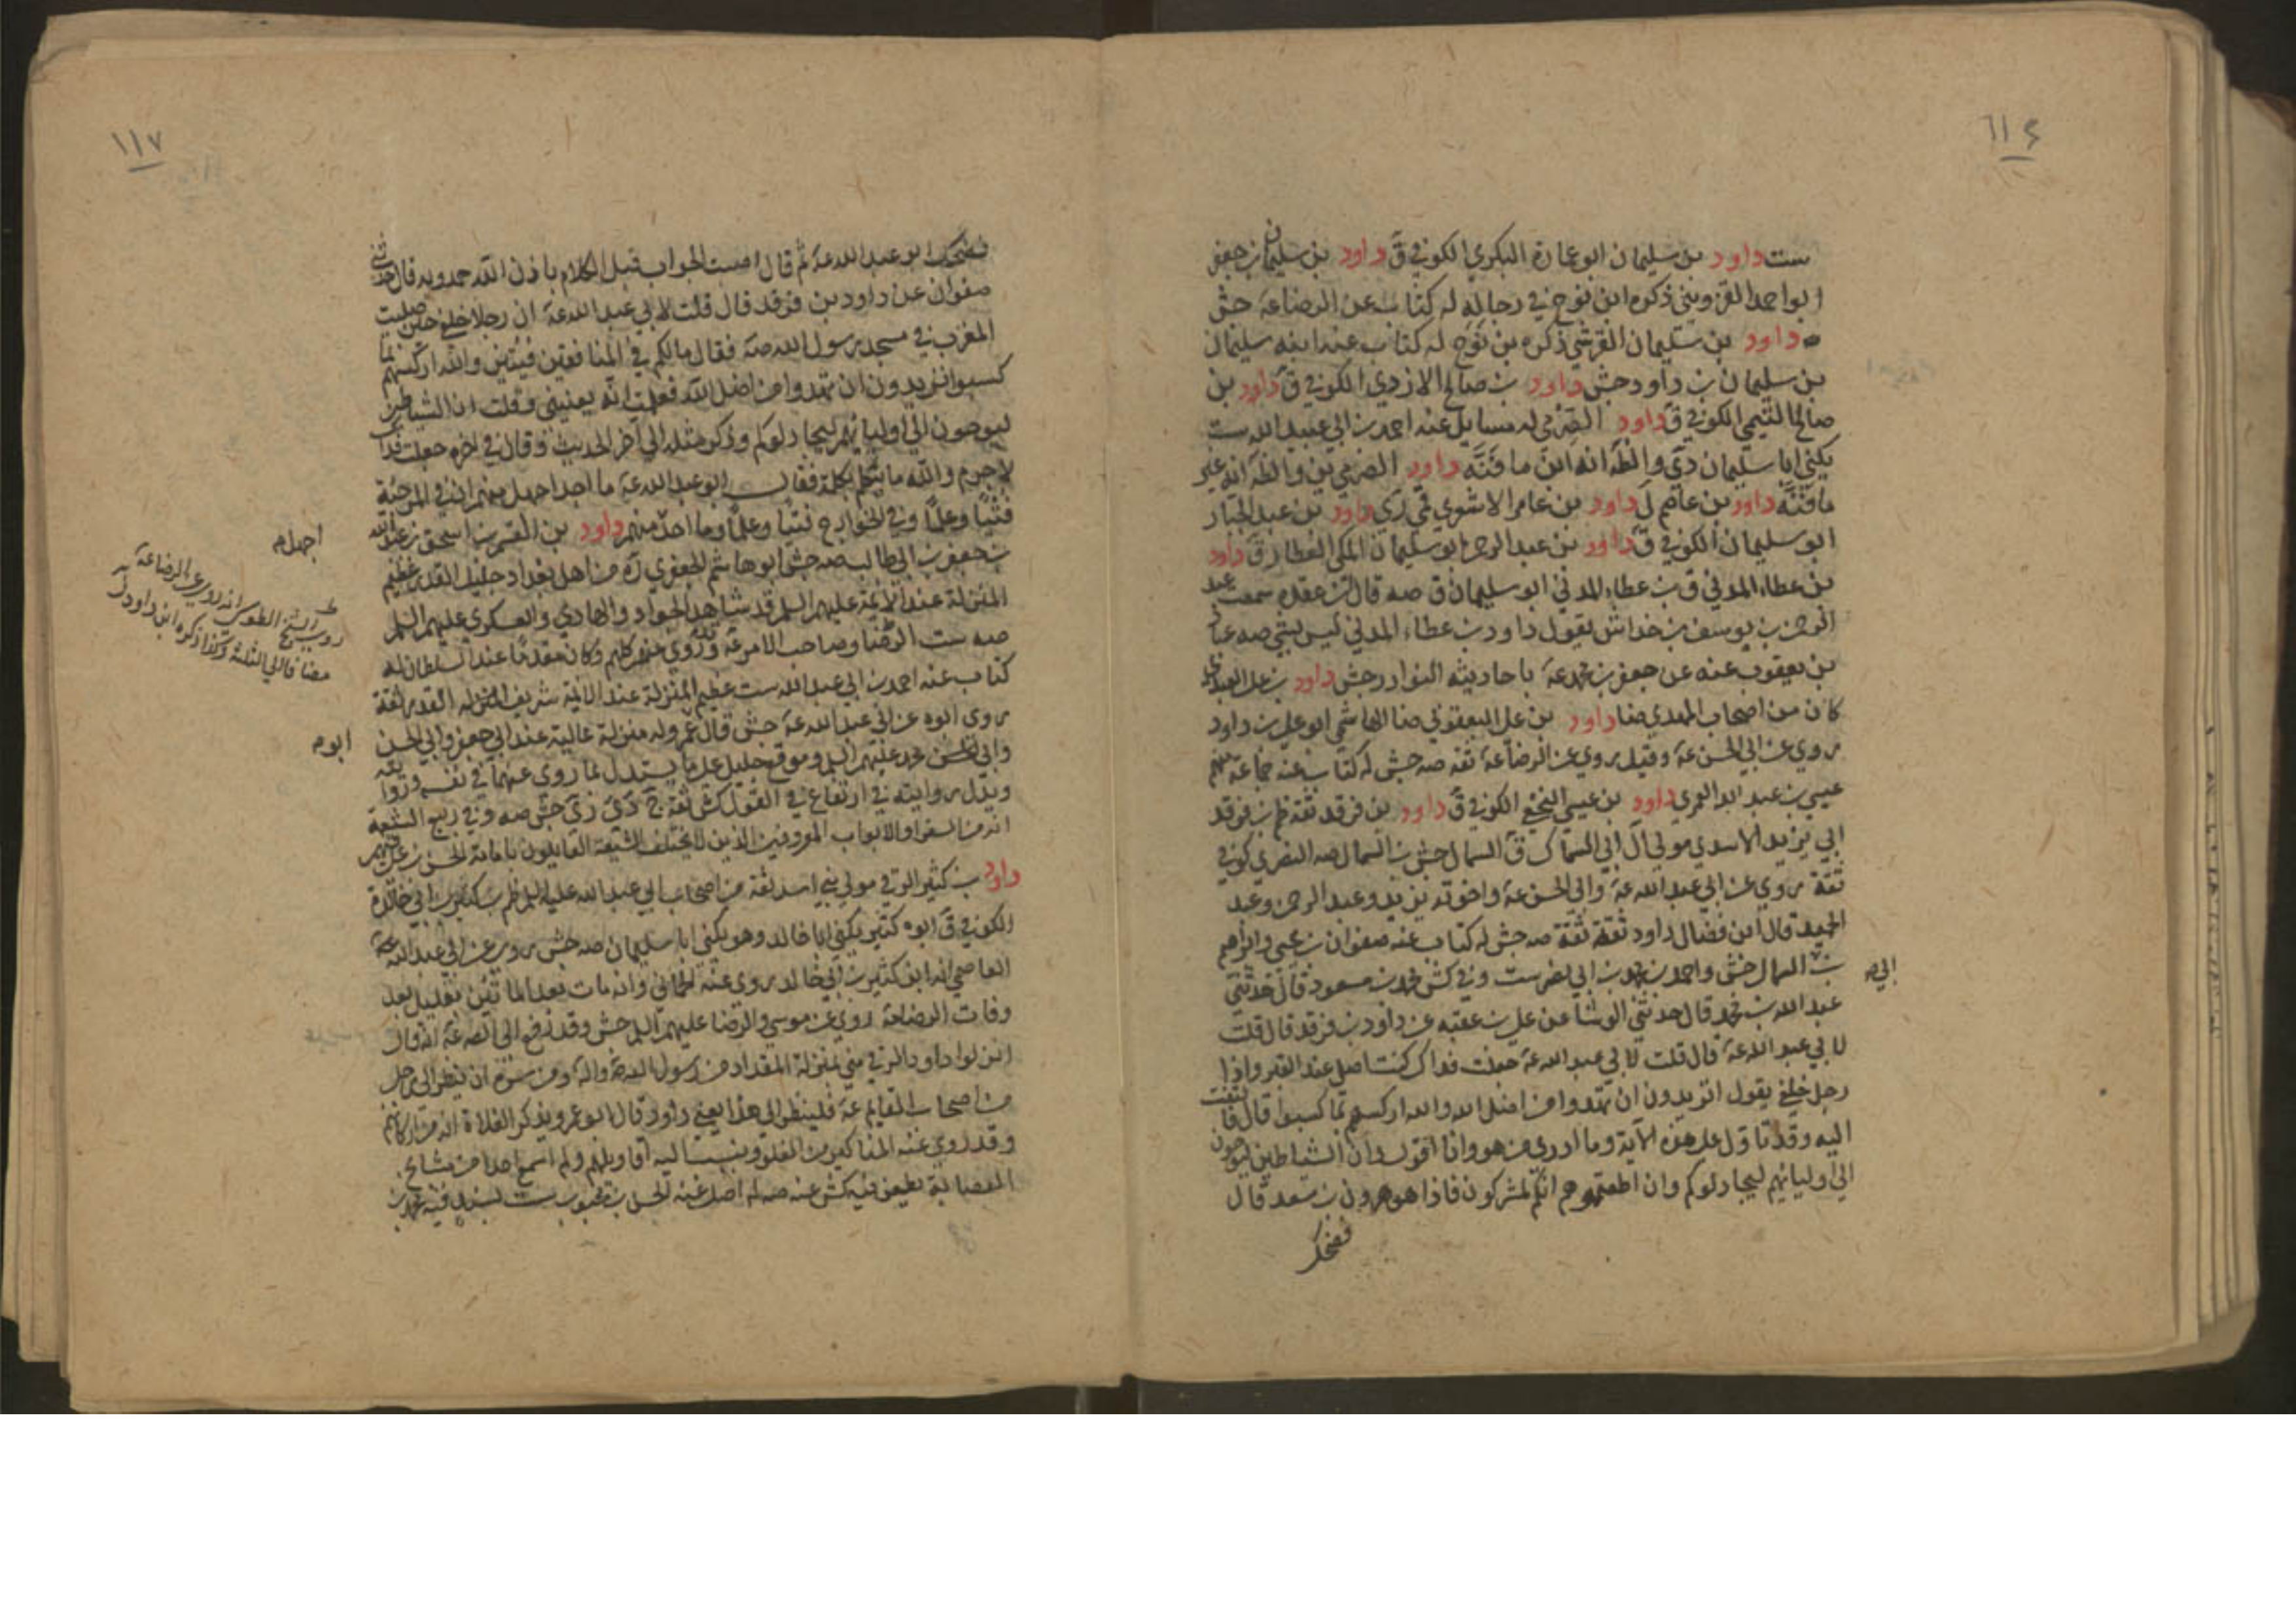 ١١٤
ست داود بن سليمان ابو عمارة البكري الكوفي ق داود بن سليمان بن جعفر
ابو احمد القزويني ذكره ابن نوح في رجاله له كتاب عن الرضا عه جش
داود بن سليمان القرشي ذكره بن نوح له كتاب عند ابنه سليمان
بن سليمان بن داود جش داود بن صالح الازدي الكوفي ق داود بن
صالح التيمي الكوفي ق داود الصرمي له مسايل عنه احمد بن ابي عبد الله ست
يكنى ابا سليمان دي والظ انه ابن مافنه داود الصرمي ين والظ انه غير
مافنه داود بن عاصم ل داود بن عامر الاشعري قمي ري داود بن عبد الجبار
ابو سليمان الكوفي ق داود بن عبد الرحمن ابو سليمان المكي العطار ق داود
بن عطاء المدني ق بن عطاء المدني ابو سليمان ق صه قال بن عقده سمعت عبد
الرحمن بن يوسف بن خداش يقول داود بن عطاء المدني ليس بشي صه
بن يعقوب عنه عن جعفر بن محمد عه باحاديثه النوادر جش داود بن علي العبدي
كان من اصحاب المفدي ضا داود بن علي اليعقوبي ضا الهاشمي ابو علي بن داود
روي عن ابي الحسن عه وقيل روي عن الرضا عه ثقه صه جش له كتاب عنه جماعة منهم
عيسى بن عبد الله العمري داود بن عيسى النخعي الكوفي ق داود بن فرقد ثقة ظم بن فرقد
ابي يزيد الاسدي مولى ال ابي السماك ق السمال جش بن السمال صه النصري كوفي
ثقة روي عن ابي عبد الله عه وابي الحسن عه واخوته يزيد وعبد الرحمن وعبد
الحميد قال ابن فضال داود ثقة ثقة صه جش له كتاب عنه صفوان بن يحيى وابراهيم
بن السمال جش واحمد بن محمد بن ابي نصر ست وفي كش محمد بن مسعود قال حدثني
ابي م
عبد الله بن محمد قال حدثني الوشا عن علي بن عقبه عن داود بن فرقد قال قلت
لابي عبد الله عه قال قلت لابي عبد الله عه جعلت فداك كنت اصلي عند القبر واذا
رجل خلفي يقول اتريدون ان تهدوا من اضل الله والله اركسهم بما كسبوا قال فالتفت
اليه وقد تاول علي هذه الاية وما ادري من هو وانا اقول وان الشياطين ليوحون
الى اوليائهم ليجادلوكم وان اطعتموهم انكم لمشركون فاذا هو هرون بن سعد قال
فضحك
١١٧
فضحك ابو عبد الله عه ثم قال اصبت الجواب قبل الكلام باذن الله حمدويه قال حدثني
صفوان عن داود بن فرقد قال قلت لابي عبد الله عه ان رجلا خلفي حين صليت
المغرب في مسجد رسول الله صه فقال مالكم في المنافقين فئتين والله اركسهم بما
كسبوا اتريدون ان تهدوا من اضل الله فعلمت انه يعنيني وقلت ان الشياطين
ليوحون الى اوليائهم ليجادلوكم وذكر مثله الى آخر الحديث وقال في اخره جعلت فداك
لا جرم والله ما تكلم بكلمة فقال ابو عبد الله عه ما احد اجهل منهم ان في المرجئة
اجهل م
فتيا وعلما وفي الخوارج فتيا وعلما وما احد منهم داود بن القسم بن اسحق بن عبد الله
بن جعفر بن ابي طالب صه جش ابو هاشم الجعفري ره من اهل بغداد جليل القدر عظيم
المنزلة عند الائمة عليهم السلم قد شاهد الجواد والهادي والعسكري عليهم السلم
صه ست الرضا وصاحب الامر عه وقد روى عنهم كلهم وكان مقدما عند السلطان له
كتاب عنه احمد بن ابي عبد الله ست عظيم المنزلة عند الائمة شريف القدر ثقة
روى ابوه عن ابي عبد الله عه جش قال عمر وله منزلة عالية عند ابي جعفر وابي الحسن
ابو م
وابي محمد عليهم السلم وموقع جليل على ما يستدل بما روى عنهما في نفسه وروايته
ويدل روايته في ارتفاع في القول كش ثقة ج دي ري جش صه وفي ربيع الشيعة
انه من السفراء والابواب المعروفين الذين لا يختلف الشيعة القايلون بامامة الحسن بن علي فيهم
داود بن كثير الرقي مولى بني اسد ثقة من اصحاب ابي عبد الله عليه السلم ظم بن كثير بن ابي خالدة
الكوفي ق ابوه كثير يكنى ابا خالد وهو يكنى ابا سليمان صه جش روى عن ابي عبد الله عه
العاصمي انه ابن كثير بن ابي خالد روى عنه الحماني وانه مات بعد المائتين بقليل بعد
وفات الرضا عه روى عن موسى والرضا عليهم السلم جش وقد رفع الى الص عه انه قال
انزلوا داود الرقي مني بمنزلة المقداد من رسول الله ص واله ومن سره ان ينظر الى رجل
من اصحاب القايم عه فلينظر الى هذا يعني داود قال ابو عمر ويذكر الغلاة انه من اركانهم
وقد روى عنه المناكير من الغلو وينسب اليه اقاويلهم ولم اسمع احدا من مشايخ
العصابة يطعن فيه كش عنه صه له اصل عنه الحسن بن محبوب ست